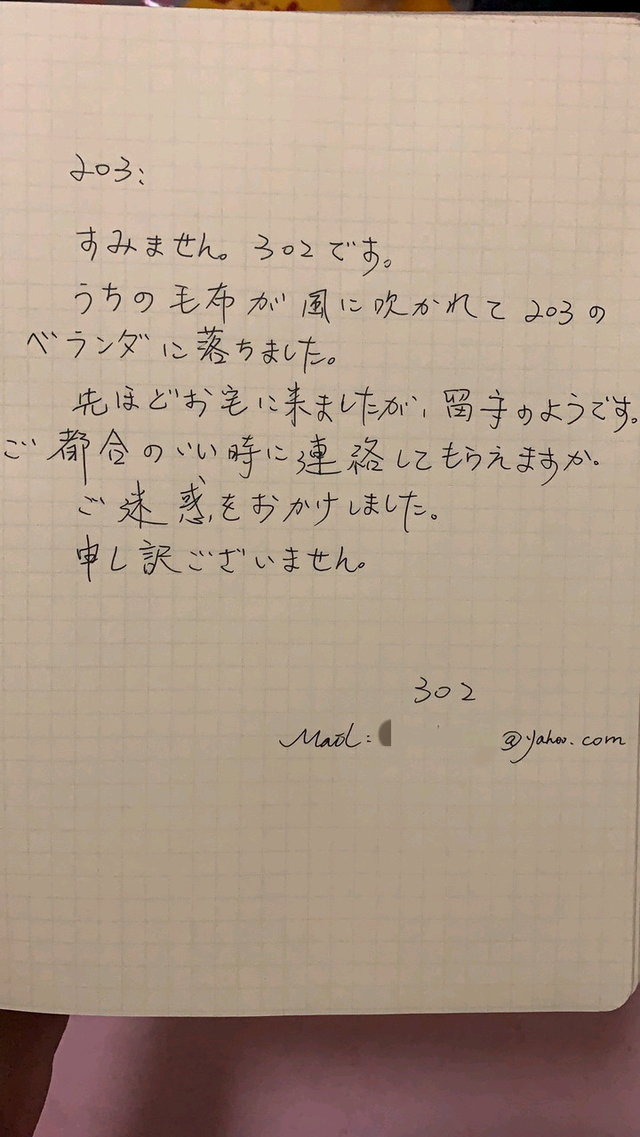 203:
すみません。302です。
うちの毛布が風に吹かれて203の
ベランダに落ちました。
先ほどお宅に来ましたが、留守のようです。
ご都合のいい時に連絡してもらえますか。
ご迷惑をおかけしました。
申し訳ございません。
302
Mail: @yahoo.com